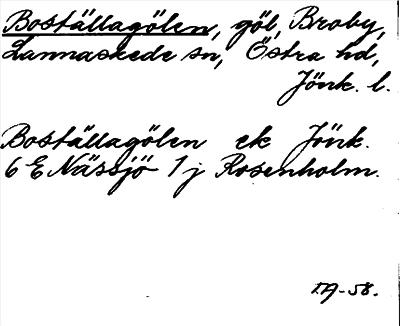 Boställagölen, göl, Broby,
Lannaskede sn, Östra hd,
Jönk. l.
Boställagölen ek Jönk.
6 E Nässjö 1 j Rosenholm.
IA-58.